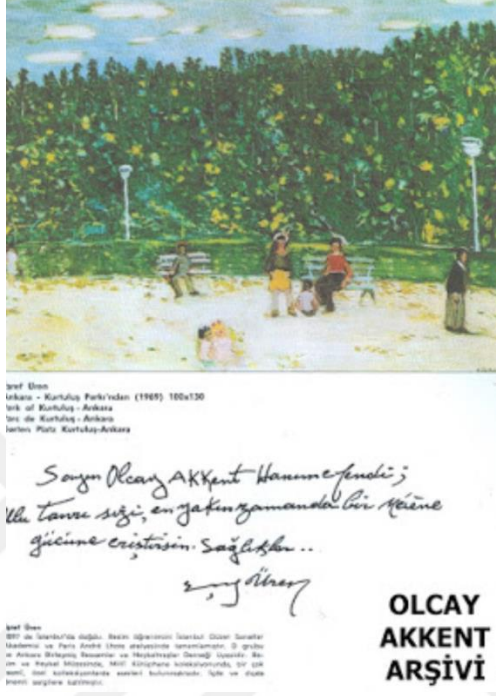 Eşref Üren
Ankara - Kurtuluş Parkı'ndan (1969) 100x130
Park of Kurtuluş - Ankara
Parc de Kurtuluş - Ankara
Garten Platz Kurtuluş-Ankara
Sayın Olcay AKKent Hanımefendi;
Ulu Tanrı sizi, en yakın zamanda bir
gücüne eriştirsin. Sağlıklar..
Eşref Üren
OLCAY
AKKENT
ARŞİVİ
Eşref Üren
1897 de İstanbul'da doğdu. Resim öğrenimini İstanbul Güzel Sanatlar
Akademisi ve Paris André Lhote atelyesinde tamamlamıştır. D grubu
ve Ankara Birleşmiş Ressamlar ve Heykeltraşlar Derneği Üyesidir.
ve Heykel Müzesinde, Millî Kütüphane koleksiyonunda, bir çok
resmî, özel koleksiyonlarda eserleri bulunmaktadır.
sergilere katılmıştır.